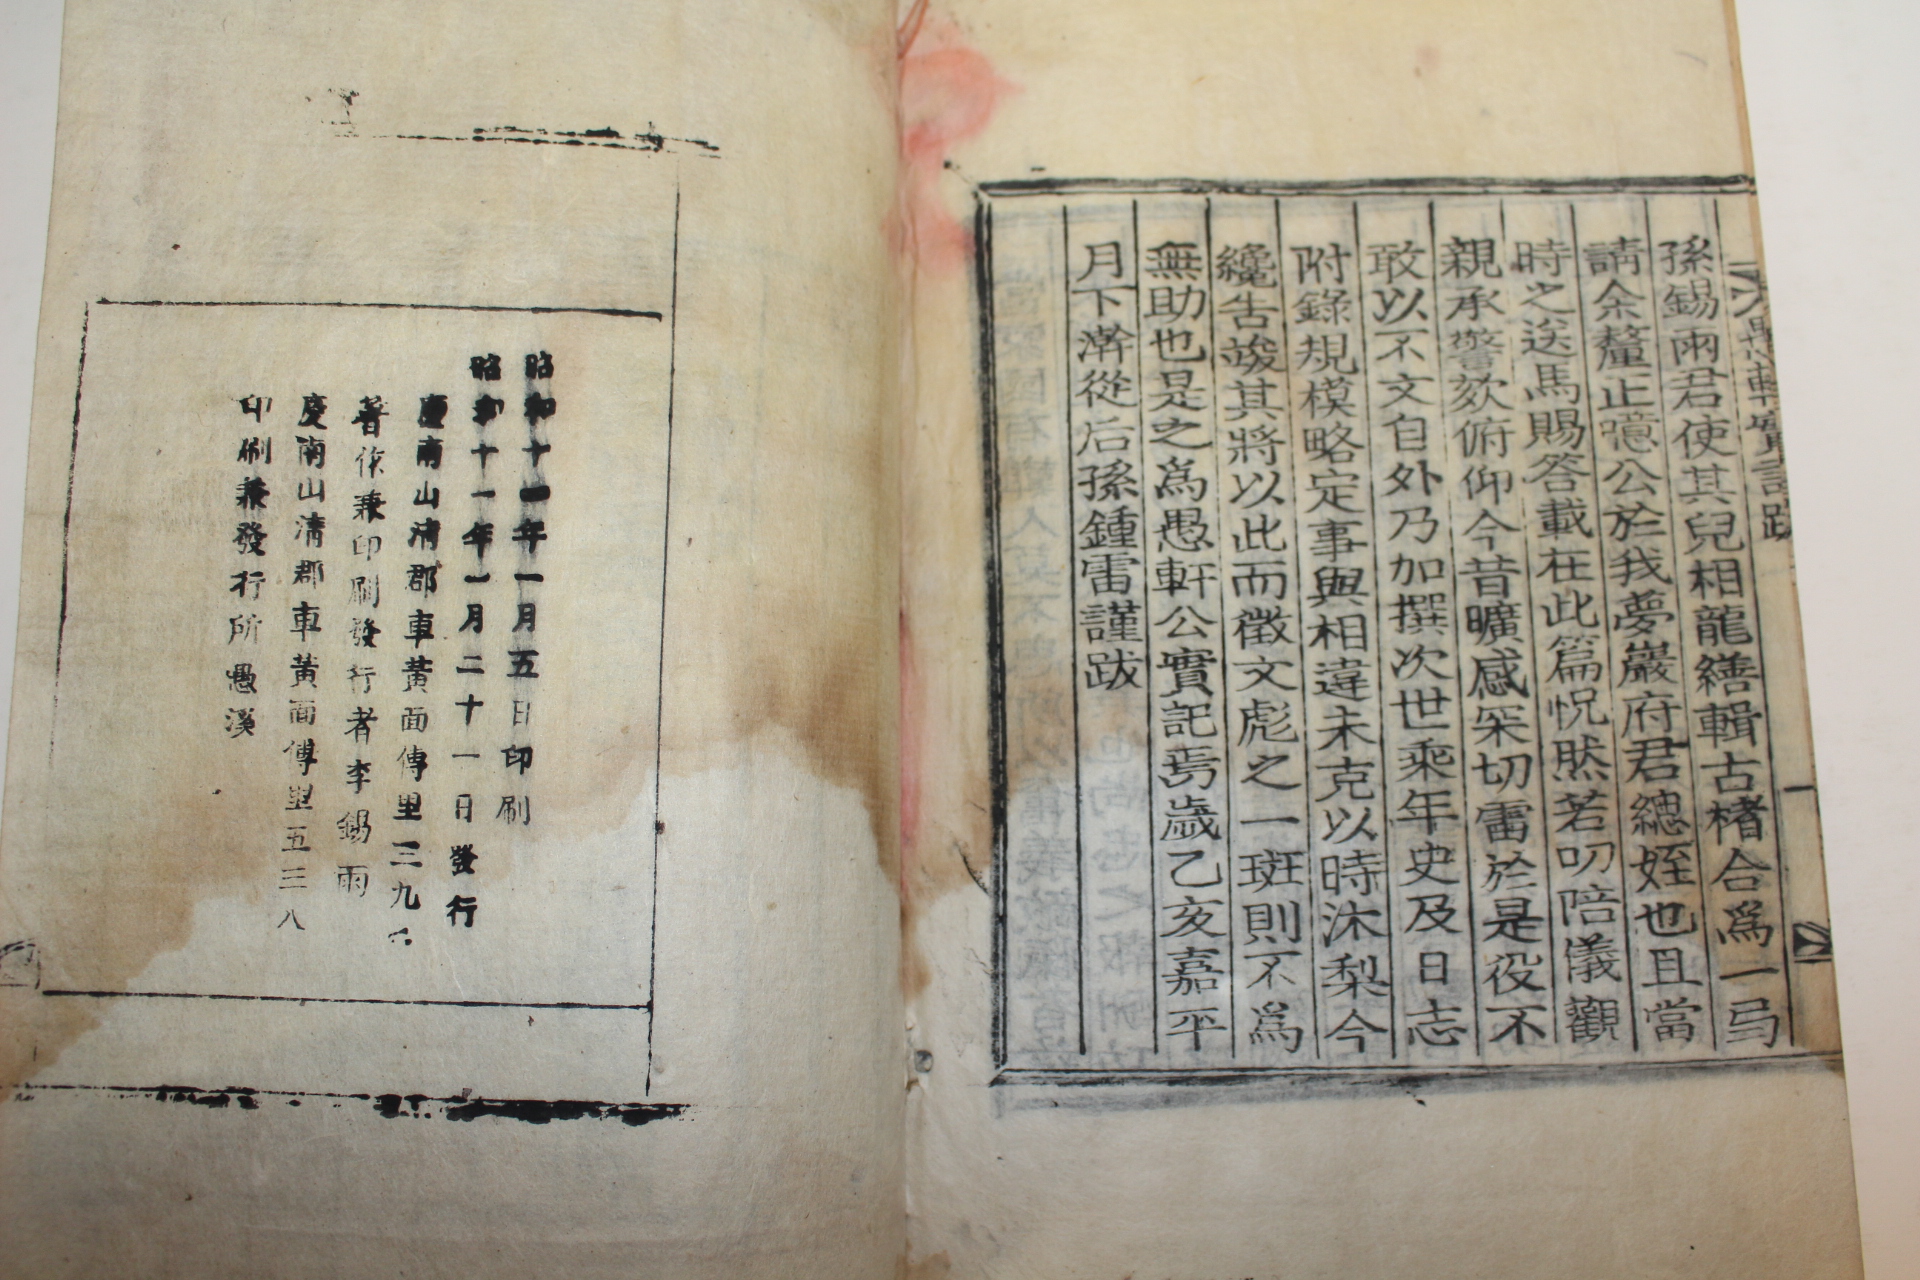 愚軒實記跋
孫錫雨君使其兒相龍繕輯古楮合爲一弓
請余釐止噫公於我夢巖府君總姪也且當
時之送馬賜答載在此篇怳然若叨陪儀觀
親承警欬俯仰今昔曠感深切雷於是役不
敢以不文自外乃加撰次世乘年史及日志
附錄規模略定事與相違未克以時沐梨今
纔告竣其將以此而徵文彪之一斑則不爲
無助也是之爲愚軒公實記焉歲乙亥嘉平
月下澣從后孫鍾雷謹跋
昭和十一年一月五日印刷
昭和十一年一月二十一日發行
慶南山淸郡車黃面傅里三九
著作兼印刷發行者李錫雨
慶南山淸郡車黃面傅里五三八
印刷兼發行所愚溪